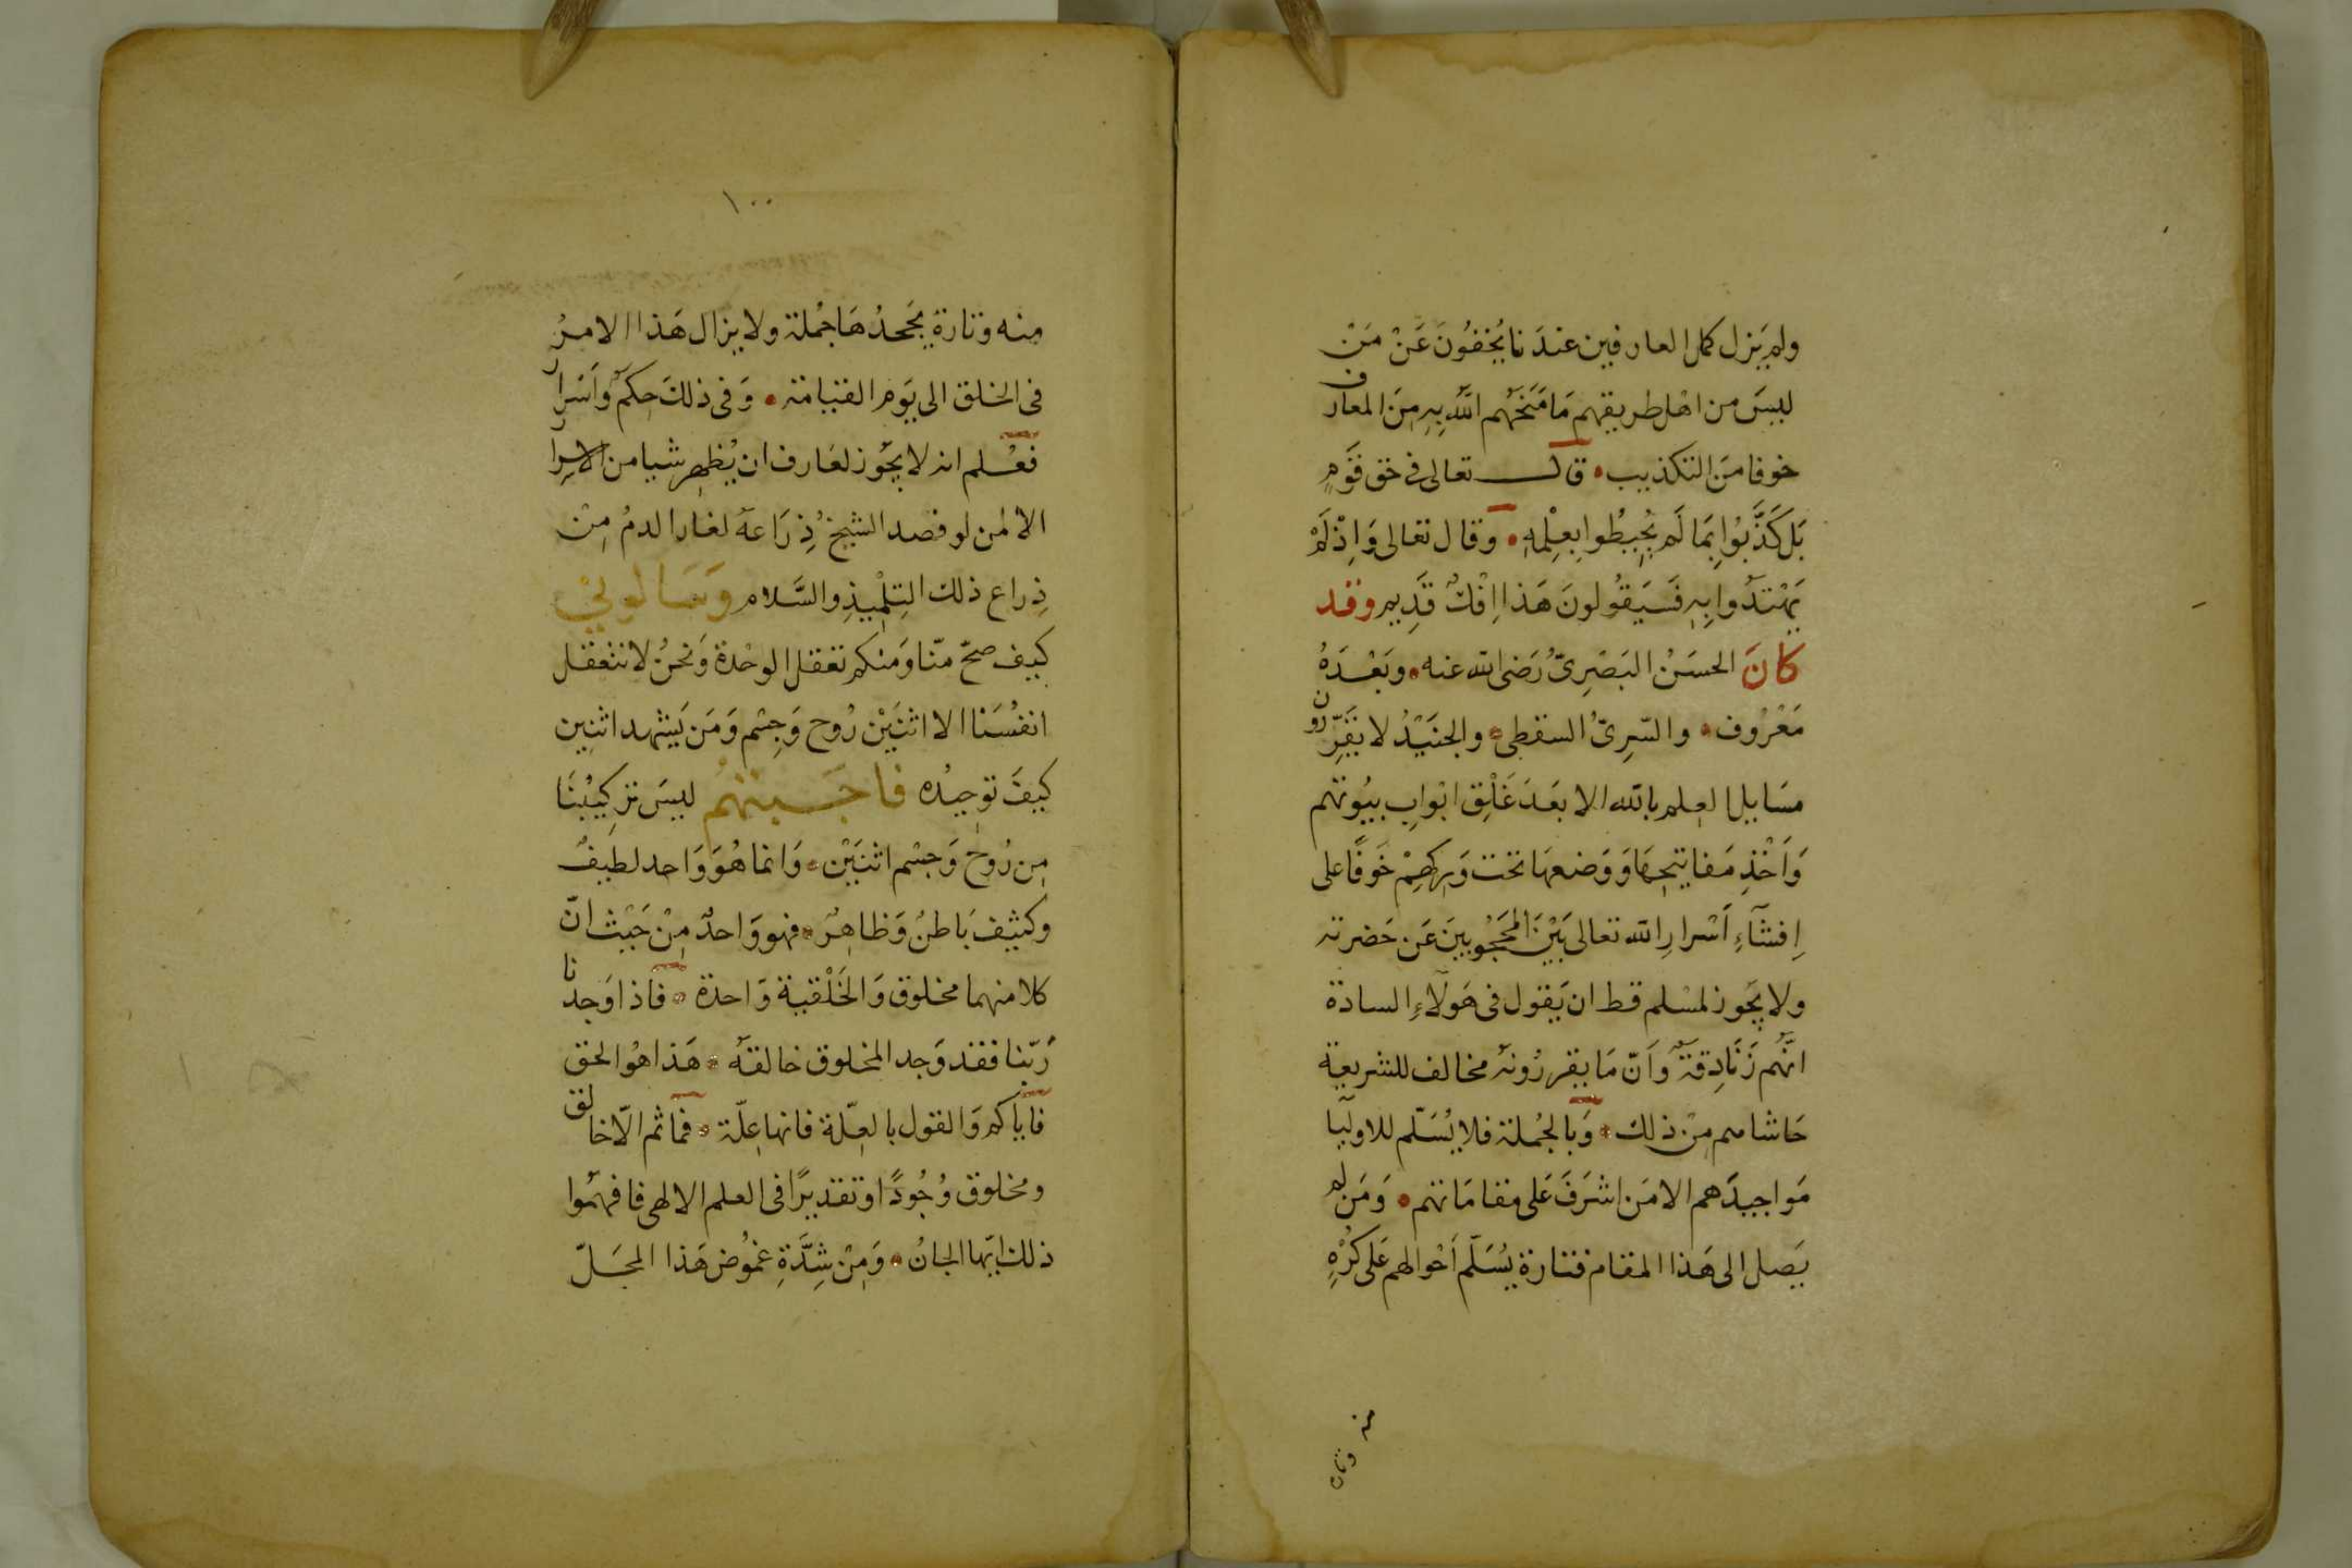 ولم يَزل كمل العارفين عندنا يُخفُونَ عَنْ مَنْ
ليسَ من اهل طريقهم مَا مَنَحَهُم اللّه بِهِ مِنَ المعارف
خوفا منَ التكذيب • قال تعالى فى حق قَوْمٍ
بَل كَذَّبُوا بِمَا لَم يُحِيطُوا بِعِلْمِهِ • وقال تعالى وَاِذْ لَمْ
يَهْتَدُوا بِهِ فَسَيَقُولونَ هَذا اِفْكٌ قَدِيم وقد
كانَ الحسَنُ البَصْرِىّ رَضى الله عنه • وبَعْدَهُ
مَعْرُوف • والسّرِىّ السقطى • والجنَيْدُ لا يقَرِّرون
مسَايل العلم بالله الا بعَد غَلْقِ ابْوابِ بيُوتهم
وَاَخْذِ مَفاتِيحِهَا وَوَضعهَا تحت وَركهِمْ خَوفًا على
اِفشَآءِ اَسْرارِ الله تعالى بَيْنَ المحَجُوبينَ عَن حَضرته
ولا يجَوز لمسْلم قط ان يَقول فى هَولآءِ السادة
انَّهُم زَنَادِقَةٌ وَاَنّ مَا يقررُونهُ مخالف للشريعة
حَاشاهم مِنْ ذلك • وَبالجُملة فلا يُسَلّم للاوليا
مَواجيدَهم الا مَن اشرَفَ عَلى مقامَاتهم • وَمَن لم
يَصل الى هَذا المقام فتارة يُسَلّم اَحْوالهم عَلى كُرْهٍ
منه وتارة
١٠٠
منه وتارة يجَحدُهَا جُملة ولا يزال هَذا الامرُ
فى الخلق الى يَوم القيامة • وَفى ذلكَ حِكمٌ وَاَسَرار
فعُلم انه لا يجَوز لعَارف ان يُظهِر شيا من الاسرار
الا لمن لو فصد الشيخُ ذِرَاعهُ لغار الدمُ مِنْ
ذِراع ذلك التِلْمِيذِ والسَّلام وَسَالونِيْ
كيف صحّ منّا وَمنكم تعَقل الوحْدة وَنحنُ لا نتعَقل
انفُسَنا الا اثنَيْن رُوح وَجِسْم وَمَن يَشهد اثنين
كيفَ توحِيدُه فاجَبتهُم ليسَ تركِيبُنَا
مِن رُوح وَجسْم اثنَيْن • وَانما هُوَ وَاحد لطيفٌ
وكثيف بَاطنٌ وَظاهِرٌ • فهو وَاحدٌ مِنْ حَيْث انّ
كلا منهما مخلوق وَالخَلْقية وَاحدة • فاذا وَجدنا
رَبّنا فقد وَجد المخلوق خالقهُ • هَذا هُو الحق
فايّاكم وَالقول بالعِلّة فانها عِلّة • فمَا ثم الّا خالق
ومخلوق وُجُودًا وتقديرًا فى العلم الالهى فافهمُوا
ذلك ايّها الجانُ • وَمِنْ شِدَّةِ غمُوض هَذا المحَلّ